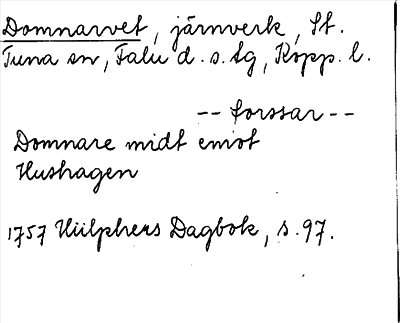 Domnarvet, järnverk, St.
Tuna sn, Falu d. s. tg, Kopp. l.
-- forssar --
Domnare midt emot
Hushagen
1757 Hülphers Dagbok, s. 97.